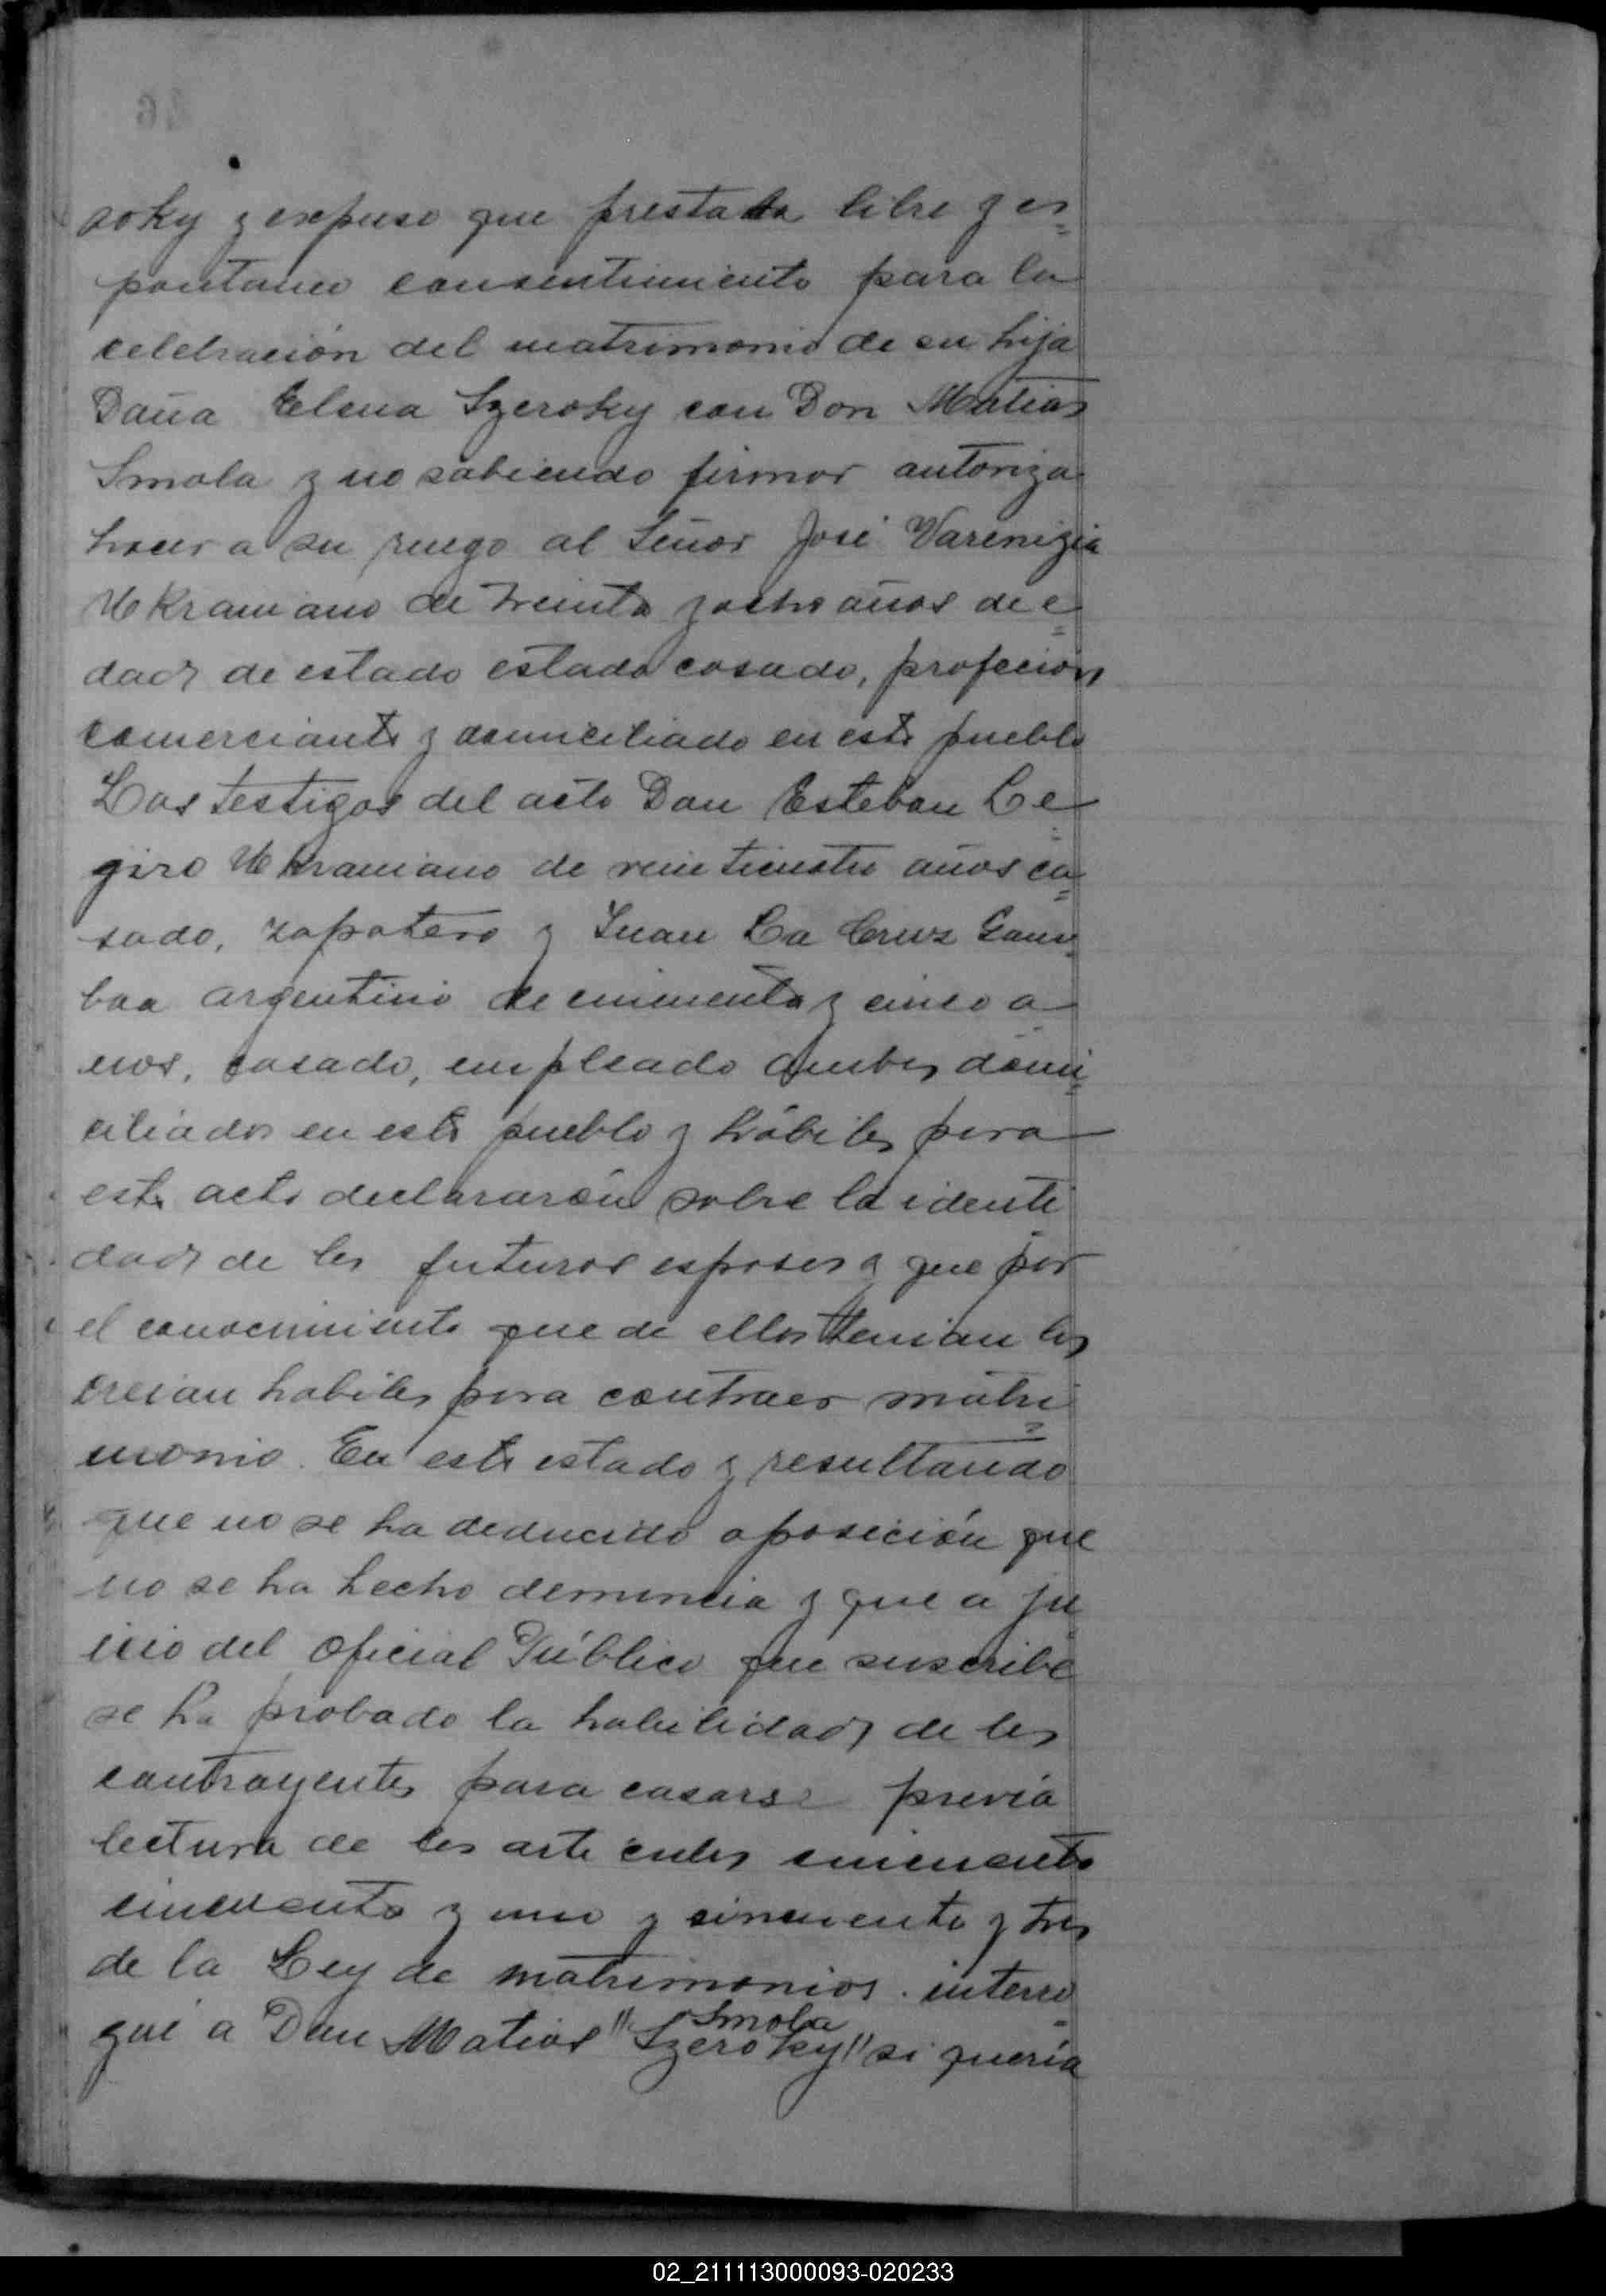 roky y expuso que prestaba libre y es=
pontaneo consentimiento para la
celebración del matrimonio de su hija
Doña Elena Szeroky con Don Matias
Smola y no sabiendo firmar autoriza
hacer a su ruego al Señor José Varenizia
Ukraniano de treinta y ocho años de e=
dad, de estado estado casado, profecion
comerciante y domiciliado en este pueblo
Los testigos del acto Don Esteban Le=
giro Ukraniano de veinticuatro años ca=
sado, zapatero y Juan La Cruz Gam=
boa argentino de cincuenta y cinco a=
ños, casado, empleado ambos domi=
ciliados en este pueblo y hábiles para
este acto declararón sobre la identi
dad de los futuros esposos y que por
el conocimiento que de ellos tenian los
creian habiles para contraer matri=
monio. En este estado y resultando
que no se ha deducido oposición que
no se ha hecho denuncia y que a ju=
icio del Oficial Público que suscribe
se ha probado la habilidad de los
contrayentes para casarse previa
lectura de los articulos cincuenta
cincuenta y uno y cincuenta y tres
de la Ley de matrimonios. interro=
gué a Don Matias "Szeroky" si quería
Smola
02_211113000093-020233